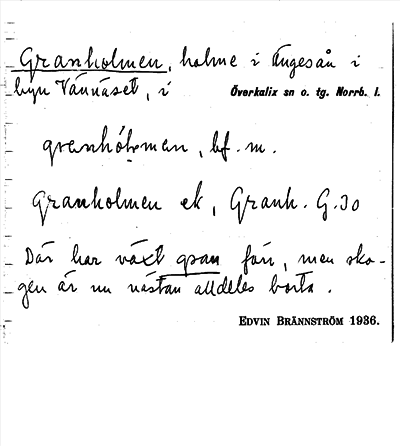 Granholmen, holme i Ängesån i
byn Vännäset, i Överkalix sn o. tg. Norrb. l.
granhólmen, bf. m.
Granholmen ek, Granh. G.30
Där har växt gran förr, men sko-
gen är nu nästan alldeles borta.
EDVIN BRÄNNSTRÖM 1936.